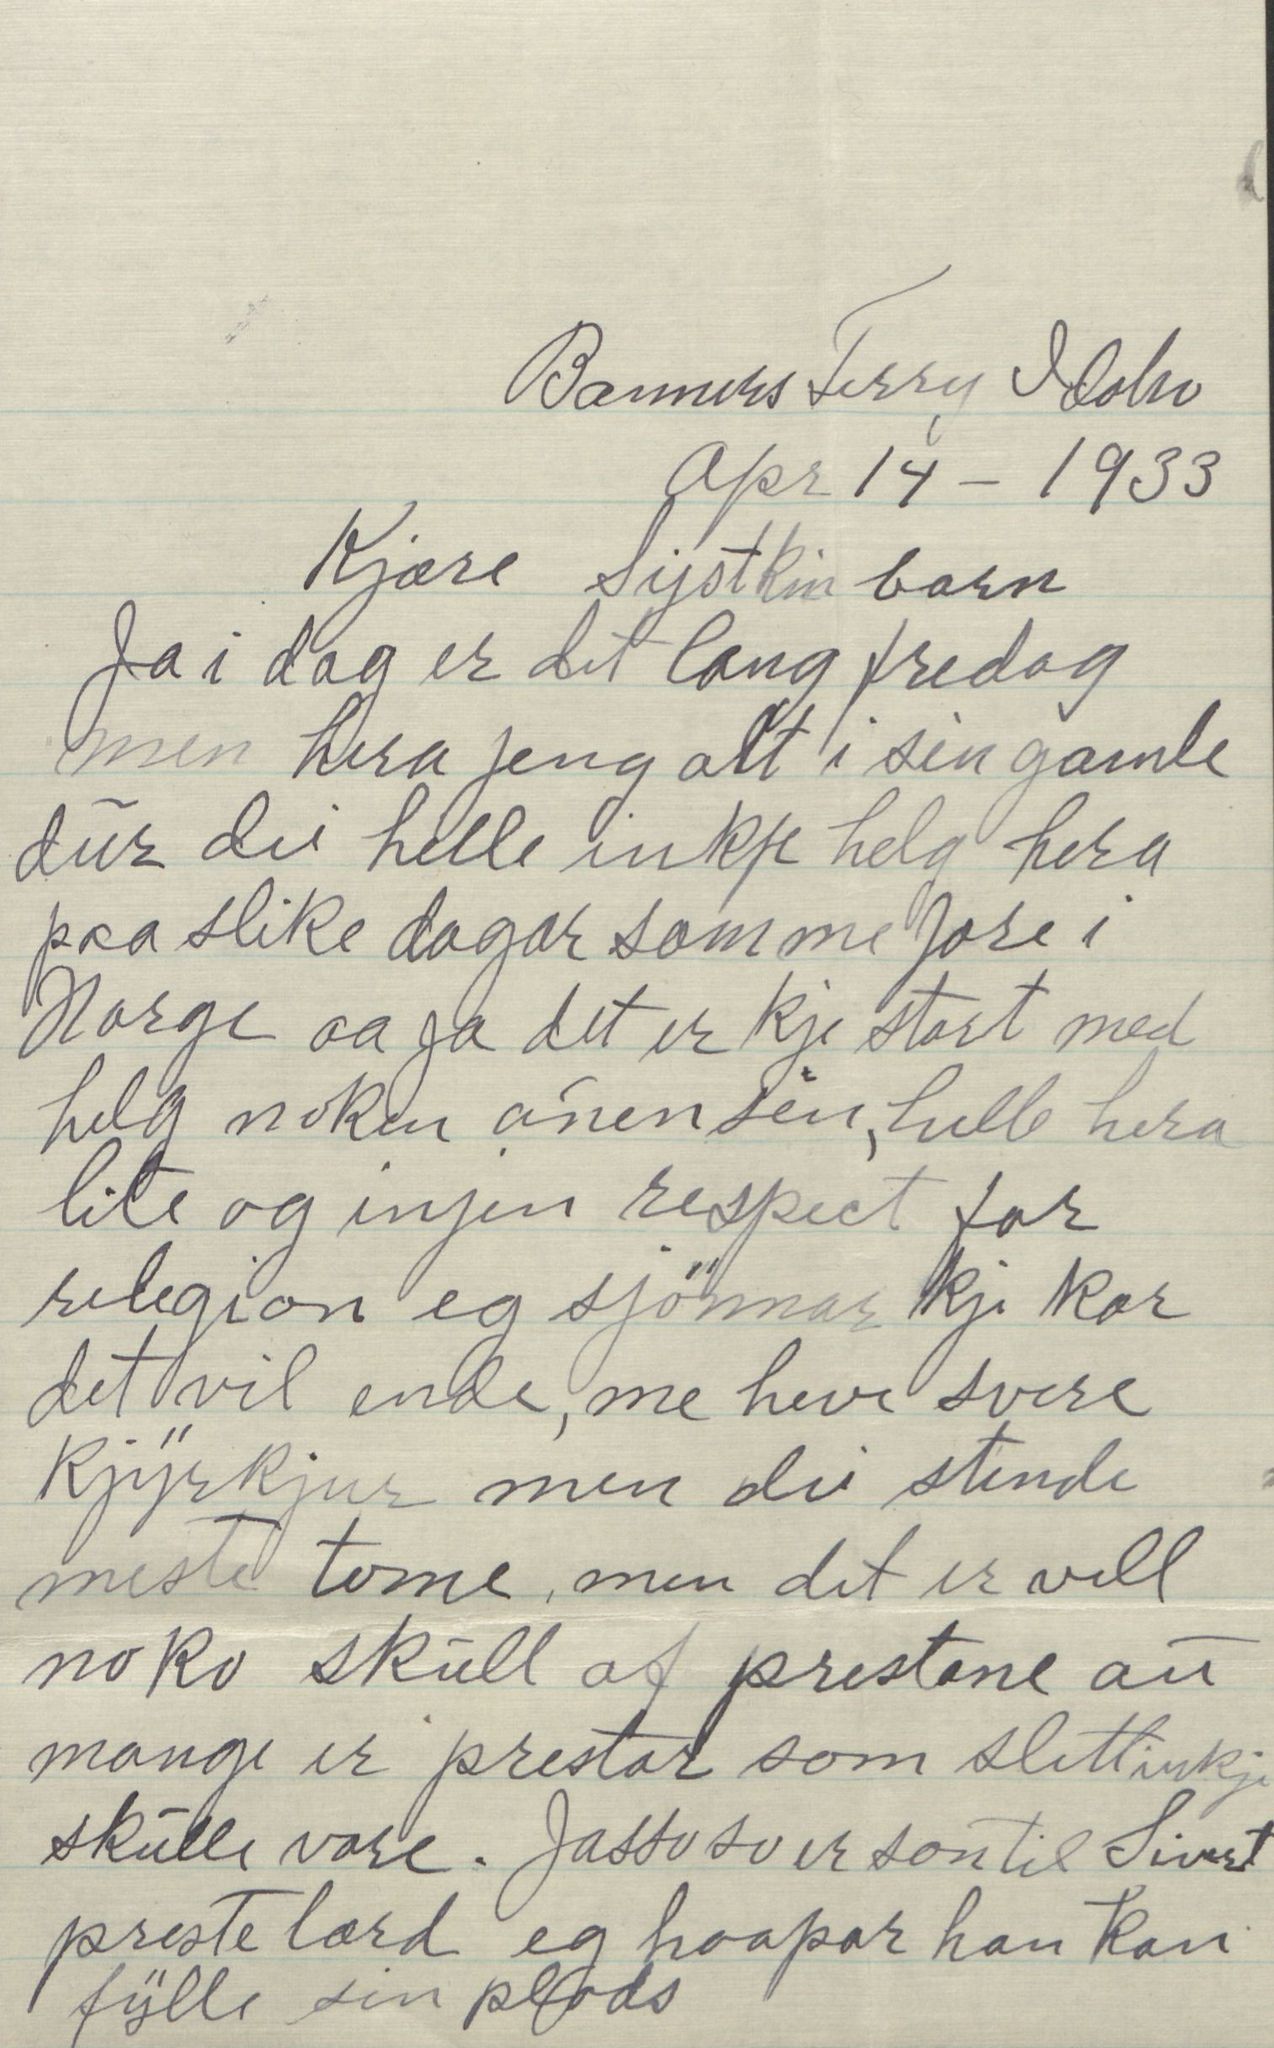 Bonners Ferry Idaho
Apr 14 - 1933
Kjære Systkin barn
Ja i dag er det lang fredag
men hera jeng alt i sin gamle
dūr dei helle inkje helg hera
paa slike dagar som me jore i
Norge aa ja det er kje stort med
helg noken ānen sin, helle hera
lite og injen respect for
relegion eg sjönnar kje kor
det vil ende, me heve svere
kjÿrkjur men dei stende
meste tome, men det er vell
noko skūll af prestane aū
mange er prestar som slett inkje
skūlle vare. Jasso so er son til Sivert
preste lærd eg haapar han kan
fÿlle sin plads